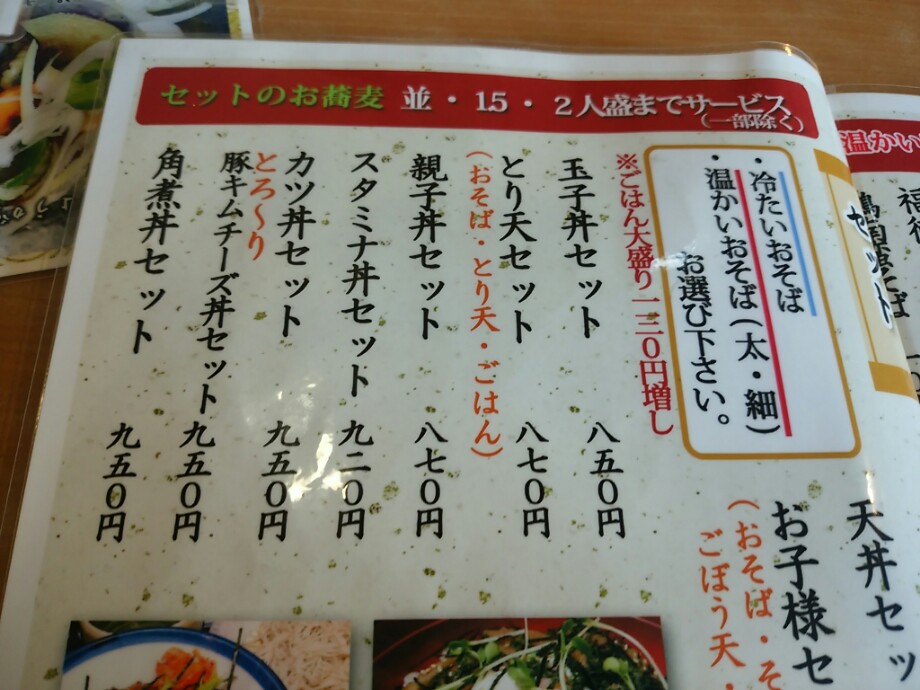 セットのお蕎麦 並・1.5・2人盛までサービス
(一部除く)
温かい
セット
・冷たいおそば
・温かいおそば(太・細)
お選び下さい。
※ごはん大盛り一三0円増し
玉子丼セット 八五0円
とり天セット 八七0円
(おそば・とり天・ごはん)
親子丼セット 八七0円
スタミナ丼セット 九二0円
カツ丼セット 九五0円
とろ〜り
豚キムチーズ丼セット 九五0円
角煮丼セット 九五0円
天丼セッ
お子様セ
(おそば・そ
ごぼう天・